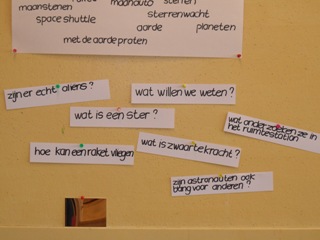 maanstenen maanauto sterren
space shuttle sterrenwacht
aarde planeten
met de aarde praten
zijn er echt aliens?
wat willen we weten?
wat is een ster?
wat onderzoeken ze in
het ruimtestation
hoe kan een raket vliegen
wat is zwaartekracht?
zijn astronauten ook
bang voor anderen?